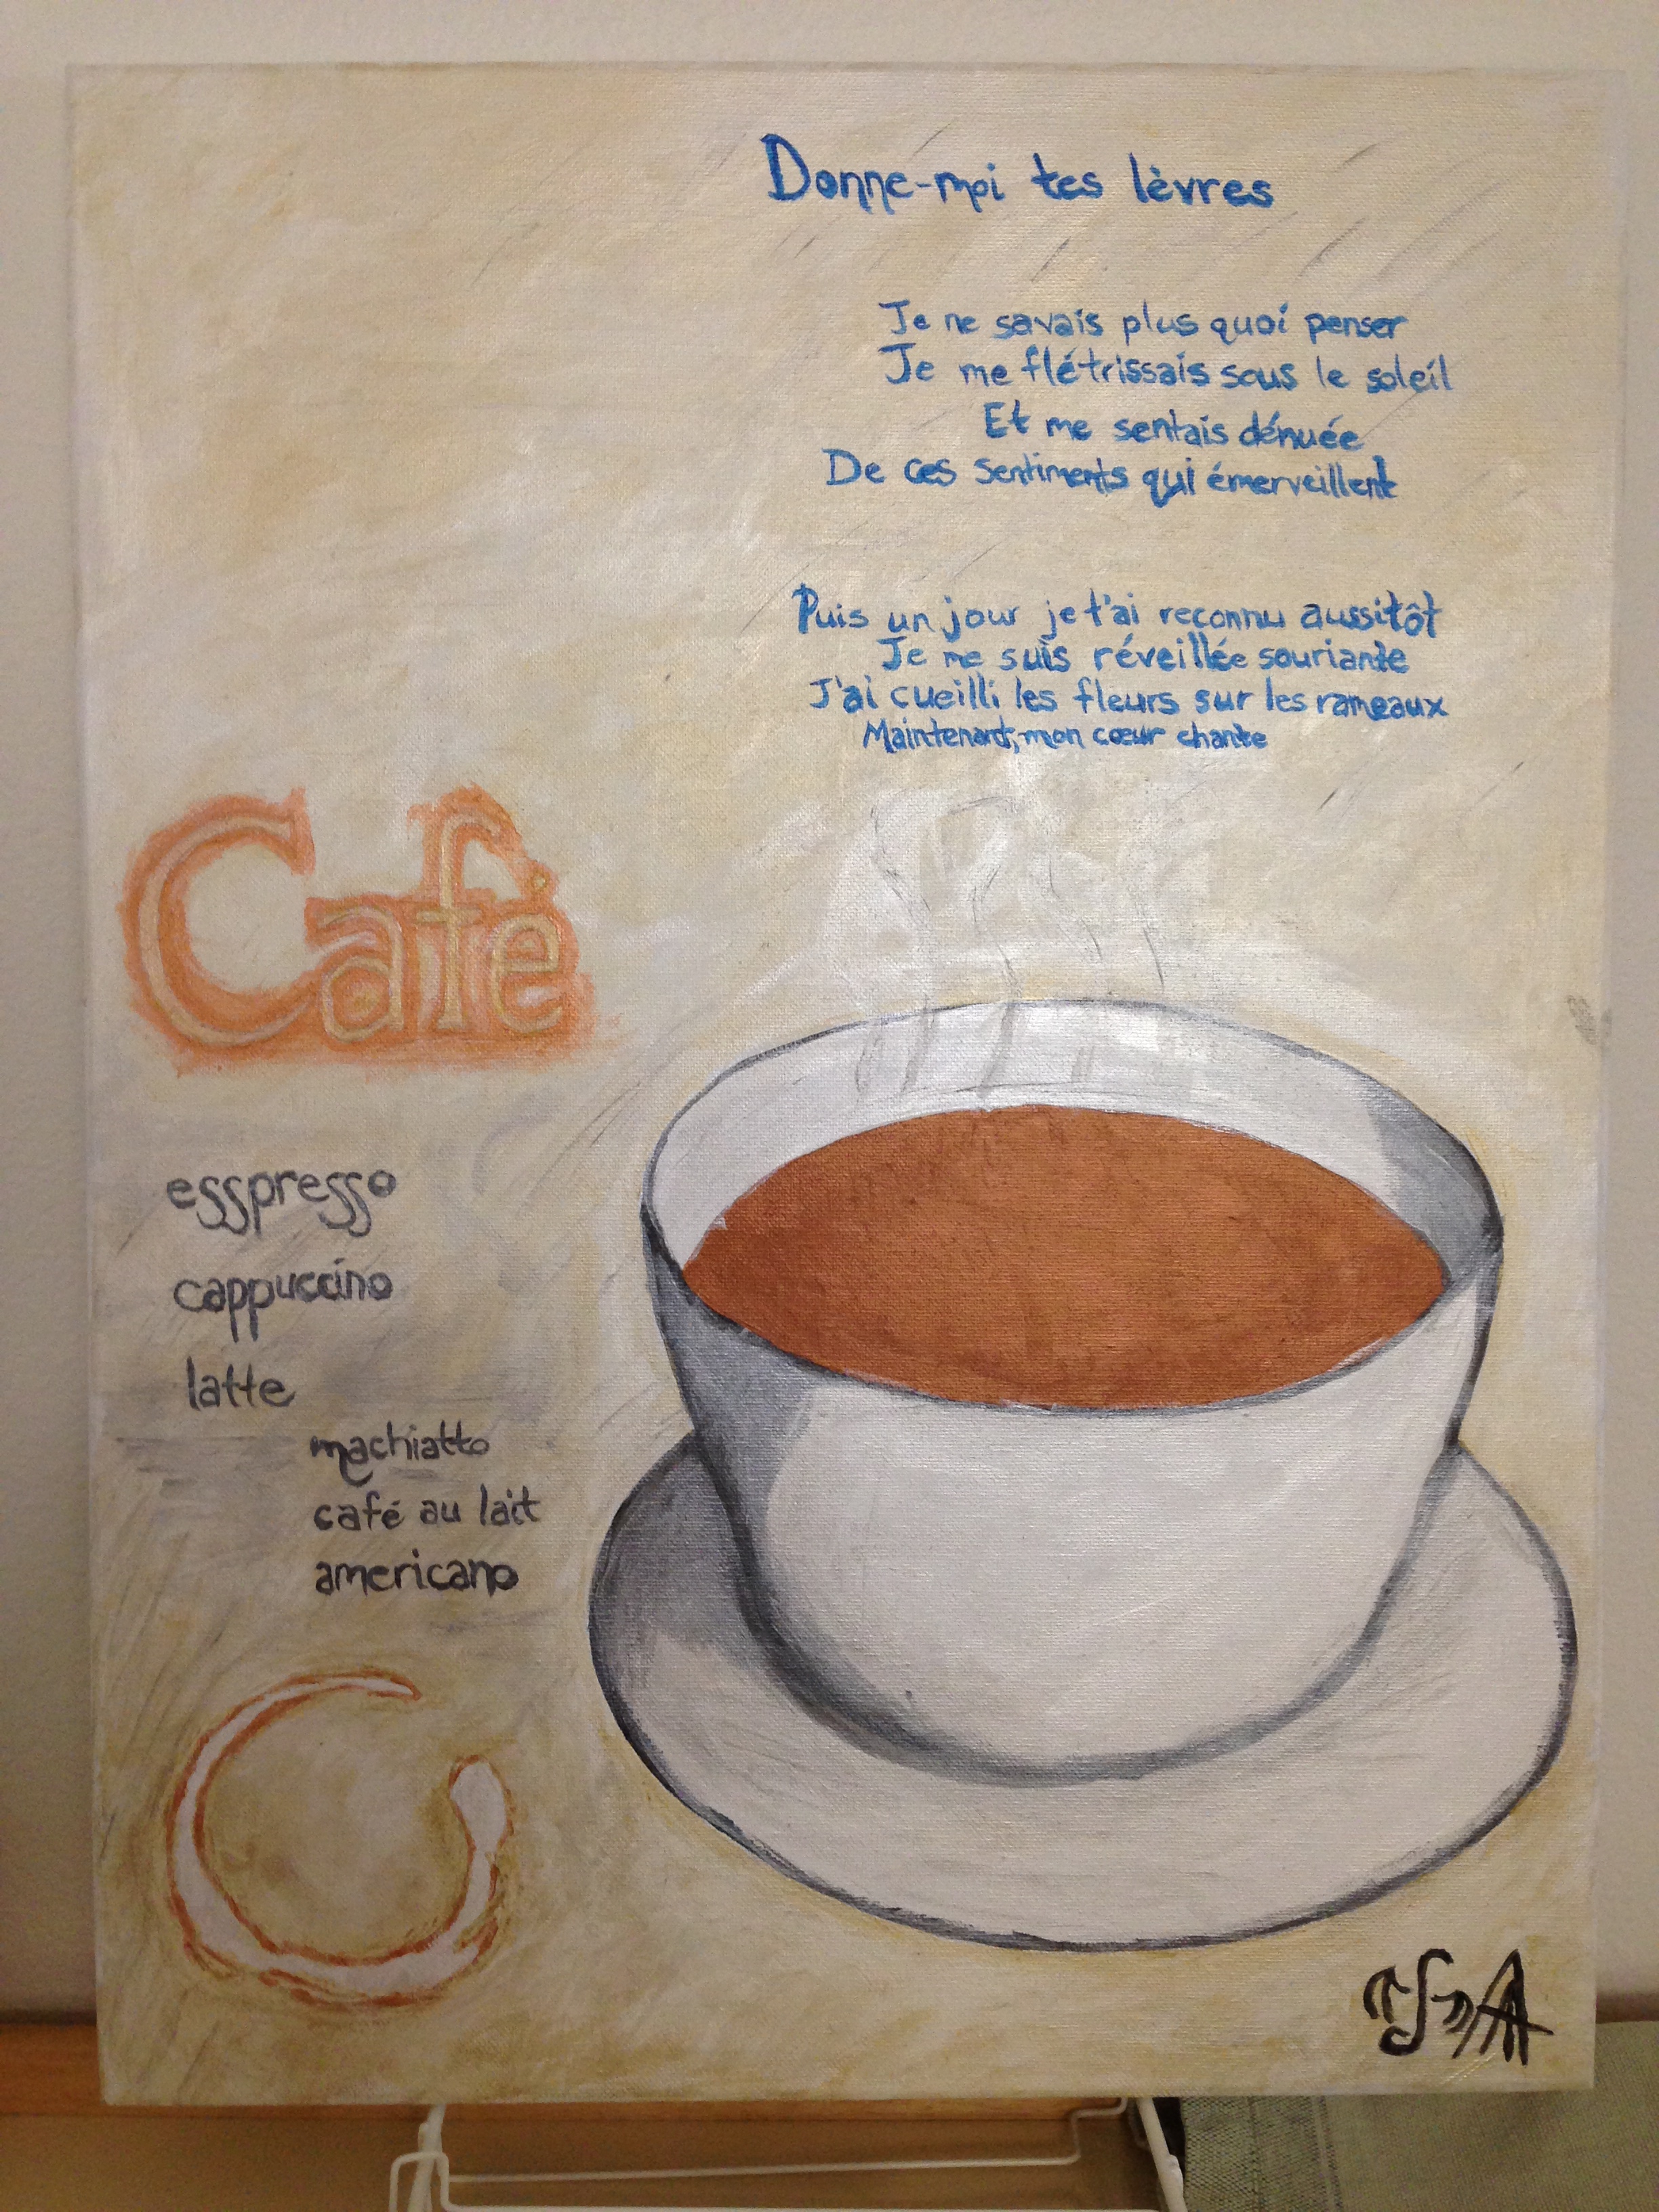 Donne-moi tes lèvres
Je ne savais plus quoi penser
Je me flétrissais sous le soleil
Et me sentais dénuée
De ces sentiments qui émerveillent
Puis un jour je t'ai reconnu aussitôt
Je me suis réveillée souriante
J'ai cueilli les fleurs sur les rameaux
Maintenant, mon cœur chante
Café
esspresso
cappuccino
latte
machiatto
café au lait
americano